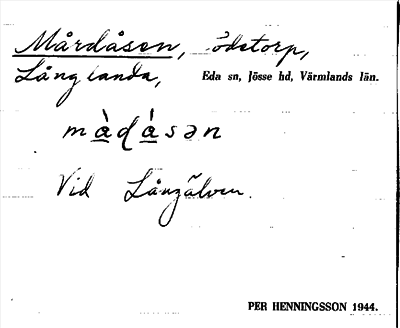 Mårdåsen, ödetorp,
Långlanda, Eda sn, Jösse hd, Värmlands län.
mɑ̀ɖɑ́sən
Vid Långälven.
PER HENNINGSSON 1944.